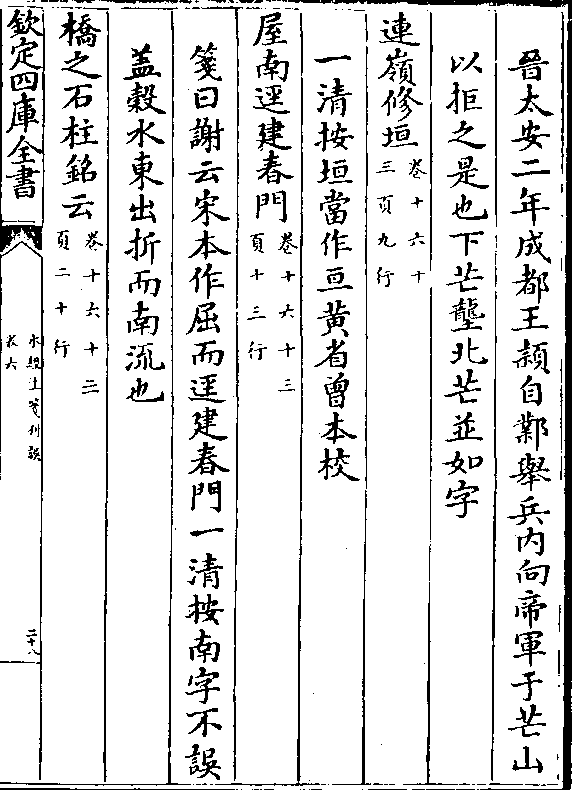 晉太安二年成都王頴自鄴舉兵内向帝軍于芒山
以拒之是也下芒壟北芒並如字
連嶺修垣卷十六十三頁九行
一清按垣當作亘黄省曾本校
屋南逕建春門卷十六十三頁十三行
箋曰謝云宋本作屈而逕建春門一清按南字不誤
蓋穀水東出折而南流也
橋之石柱銘云卷十六十三頁二十行
欽定四庫全書
水經注箋刊誤
卷六
二十八